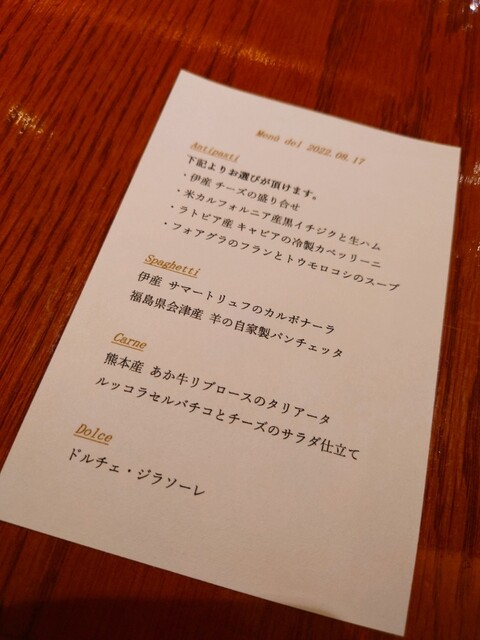 Menù del 2022.08.17
Antipasti
下記よりお選びが頂けます。
・伊産 チーズの盛り合せ
・米カルフォルニア産黒イチジクと生ハム
・ラトビア産 キャビアの冷製カペッリーニ
・フォアグラのフランとトウモロコシのスープ
Spaghetti
伊産 サマートリュフのカルボナーラ
福島県会津産 羊の自家製パンチェッタ
Carne
熊本産 あか牛リブロースのタリアータ
ルッコラセルバチコとチーズのサラダ仕立て
Dolce
ドルチェ・ジラソーレ